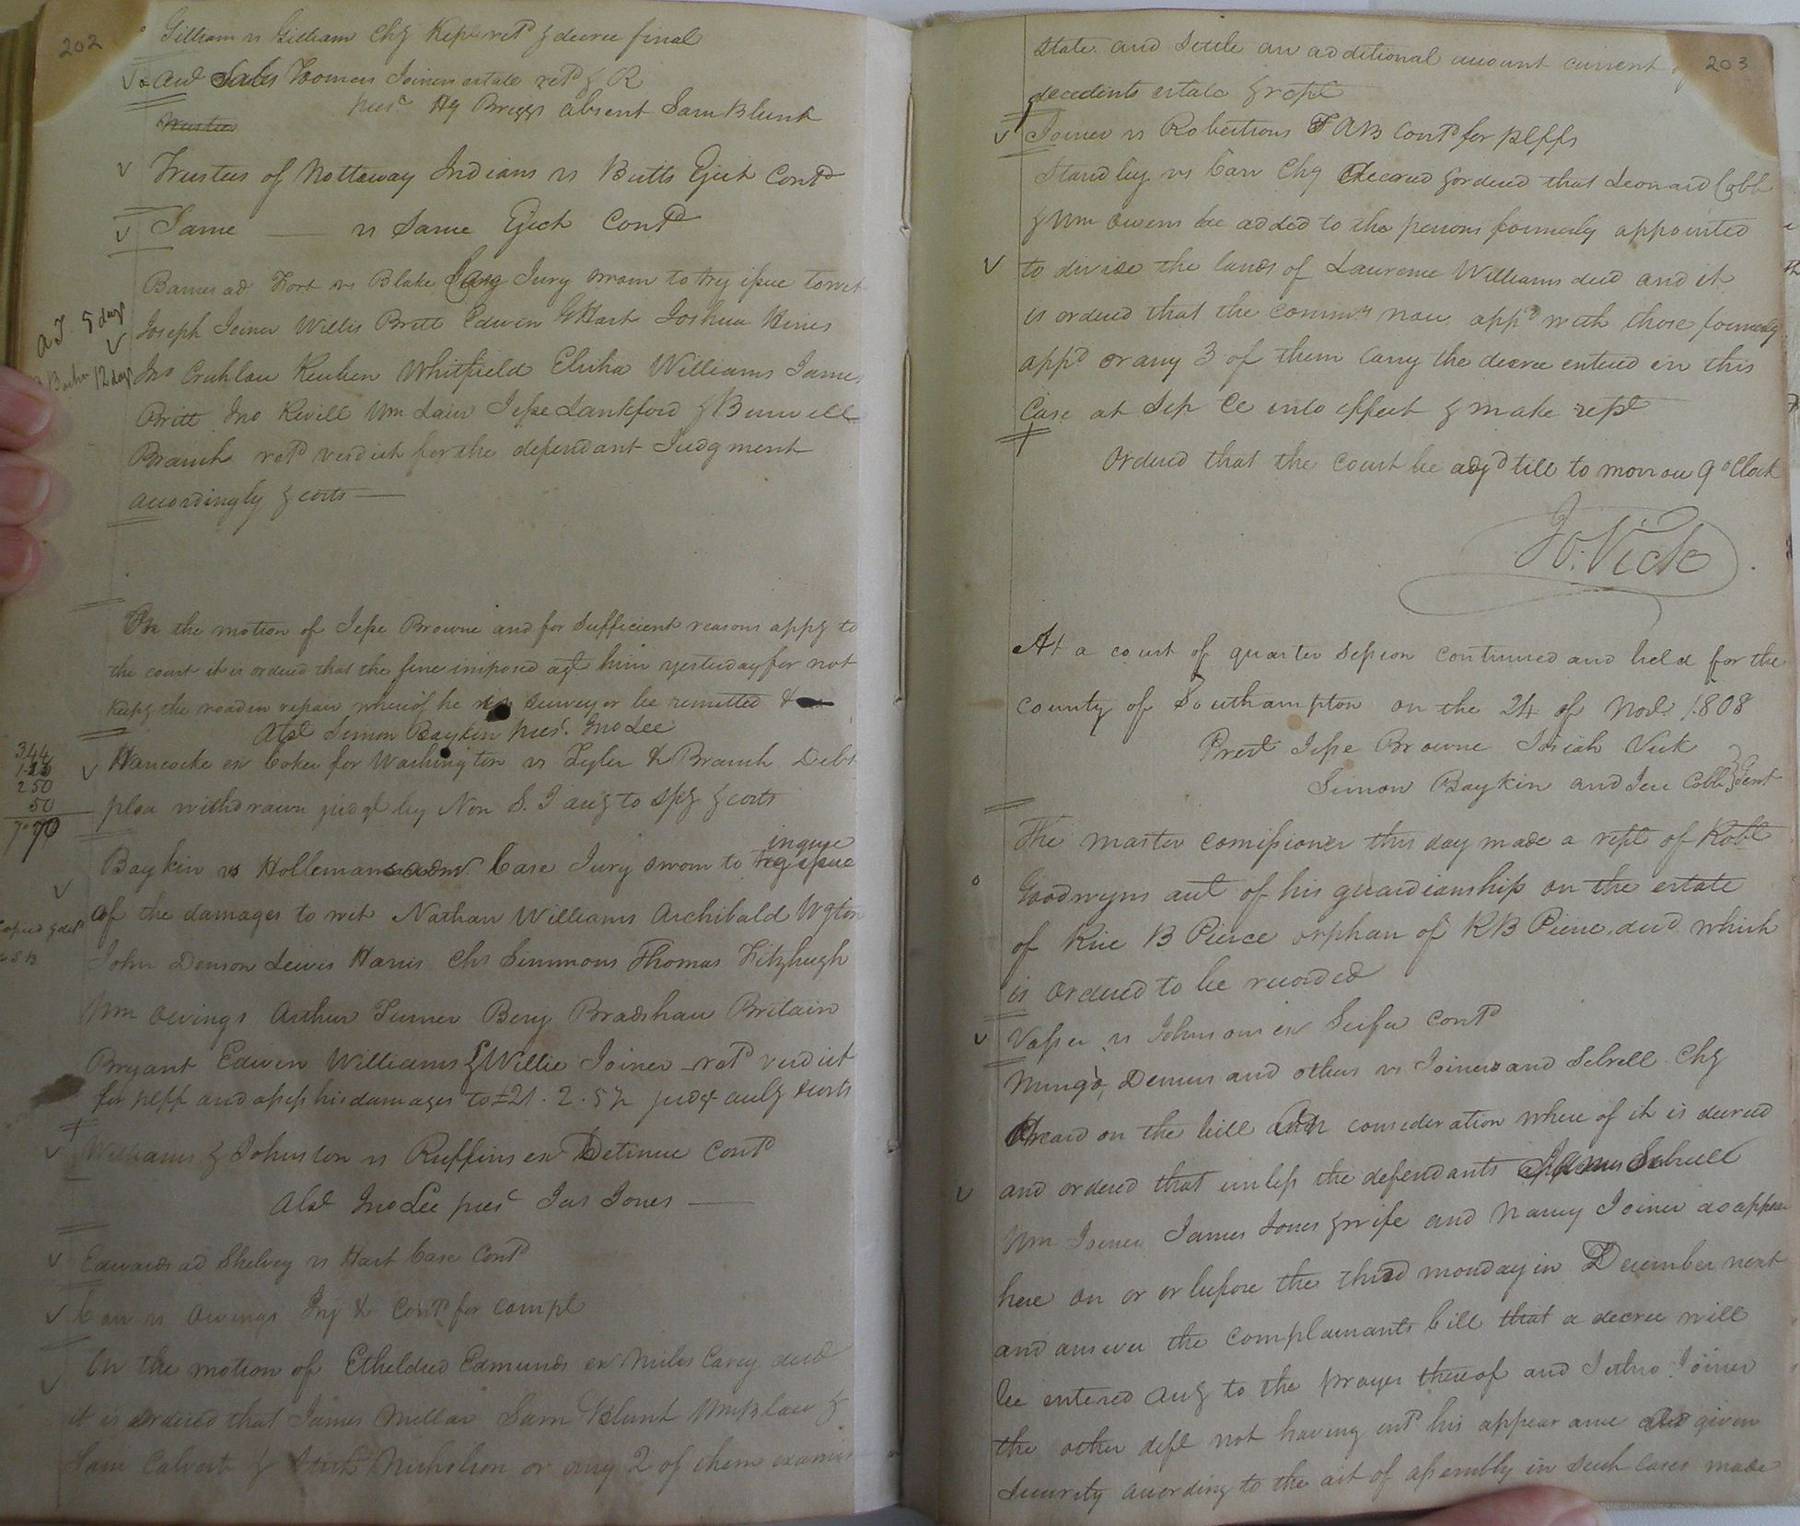 202
Gilliam vs Gilliam Chy Rept retd & decree final
Sales Thomas Joiners estate retd & R
prest Hy Briggs absent Sam Blunt
Trustees of Nottoway Indians vs Butts Eject Contd
Same — vs Same Eject Contd
Barnes ad Fort vs Blake Jury sworn to try issue towit
Joseph Joiner Willis Britt Edwin G Hart Joshua Hines
Jno Crichlau Reuben Whitfield Elisha Williams James
Britt Jno Revill Wm Lain Jesse Lankford & Burwell
Branch retd verdict for the defendant Judgment
accordingly & costs —
A J. 5 days
12 days
On the motion of Jesse Browne and for sufficient reasons appg to
the court it is ordered that the fine imposed agt him yesterday for not
keepg the road in repair whereof he is surveyor be remitted &
Abst Simon Boykin prest. Jno Lee
344
250
50
Hancocke ex Coker for Washington vs Tyler & Branch Debt
plea withdrawn judgt by Non S. I accg to spy & costs
inquire
Boykin vs Hollemans admr Case Jury sworn to try issue
of the damages to wit Nathan Williams Archibald Wgton
John Denson Lewis Harris Chs Simmons Thomas Fitzhugh
Wm Owings Arthur Turner Benj Bradshaw Britain
Bryant Edwin Williams & Willie Joiner retd verdict
for pltff and assess his damages to £21. 2. 5½ judgt accg & costs
Williams & Johnston vs Ruffins ex Detinue Contd
Abst Jno Lee prest Jas Jones —
Edwards ad Shelvey vs Hart Case Contd
Carr vs Owings Inj & Contd for compl
On the motion of Etheldred Edmunds ex Miles Carey decd
it is ordered that James Millar Sam Blunt Wm Blow &
Sam Calvert & Nicholson or any 2 of them examine
203
state and settle an additional account current of
decedents estate & rept
Joiner vs Robertsons TAB Contd for pltffs
Standley vs Carr Chy Decreed & ordered that Leonard Cobb
& Wm Owens be added to the persons formerly appointed
to divide the lands of Laurence Williams decd and it
is ordered that the commrs now appd with those formerly
appd or any 3 of them carry the decree entered in this
Case at Sep Ct into effect & make rept
Ordered that the Court be adjd till to morrow 9 oClock
Jo: Vick
At a court of quarter Session continued and held for the
county of Southampton on the 24 of Novr 1808
Prest Jesse Browne Josiah Vick
Simon Boykin and Jere Cobb Gent
The master comissioner this day made a rept of Robt
Goodwyns acct of his guardianship on the estate
of Rice B Pierce orphan of R B Pierce decd which
is ordered to be recorded
Vasser vs Johnsons ex Scifa Contd
Mingo, Demus and others vs Joiners and Sebrell Chy
heard on the bill on consideration where of it is decreed
and ordered that unless the defendants James Sebrell
Wm Joiner James Jones & wife and Nancy Joiner do appear
here on or or before the third monday in December next
and answer the complainants bill that a decree will
be entered accg to the prayer thereof and Jethro Joiner
the other deft not having entd his appearance and given
security according to the act of assembly in such cases made